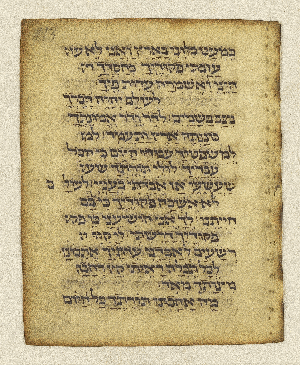 כמעט כלוני בארץ ואני לא עז
עזבתי פקודיך כחסדך חי
חיני ואשמרה עדות פיך
לעולם יהוה דברך
נצב בשמים לדר ודר אמונתך
כוננת ארץ ותעמד למש
למשפטיך עמדו היום כי הכל
עבדיך לולי תורתך שעש
שעשעי אז אבדתי בעניי לעול
לא אשכח פקודיך כי בם
חייתני לך אני הושיעני כי פקו
פקודיך דרשתי לי קוו
רשעים לאבדני עדותיך אתבונן
לכל תכלה ראיתי קץ רחבה
מצותך מאד
מה אהבתי תורתך כל היום